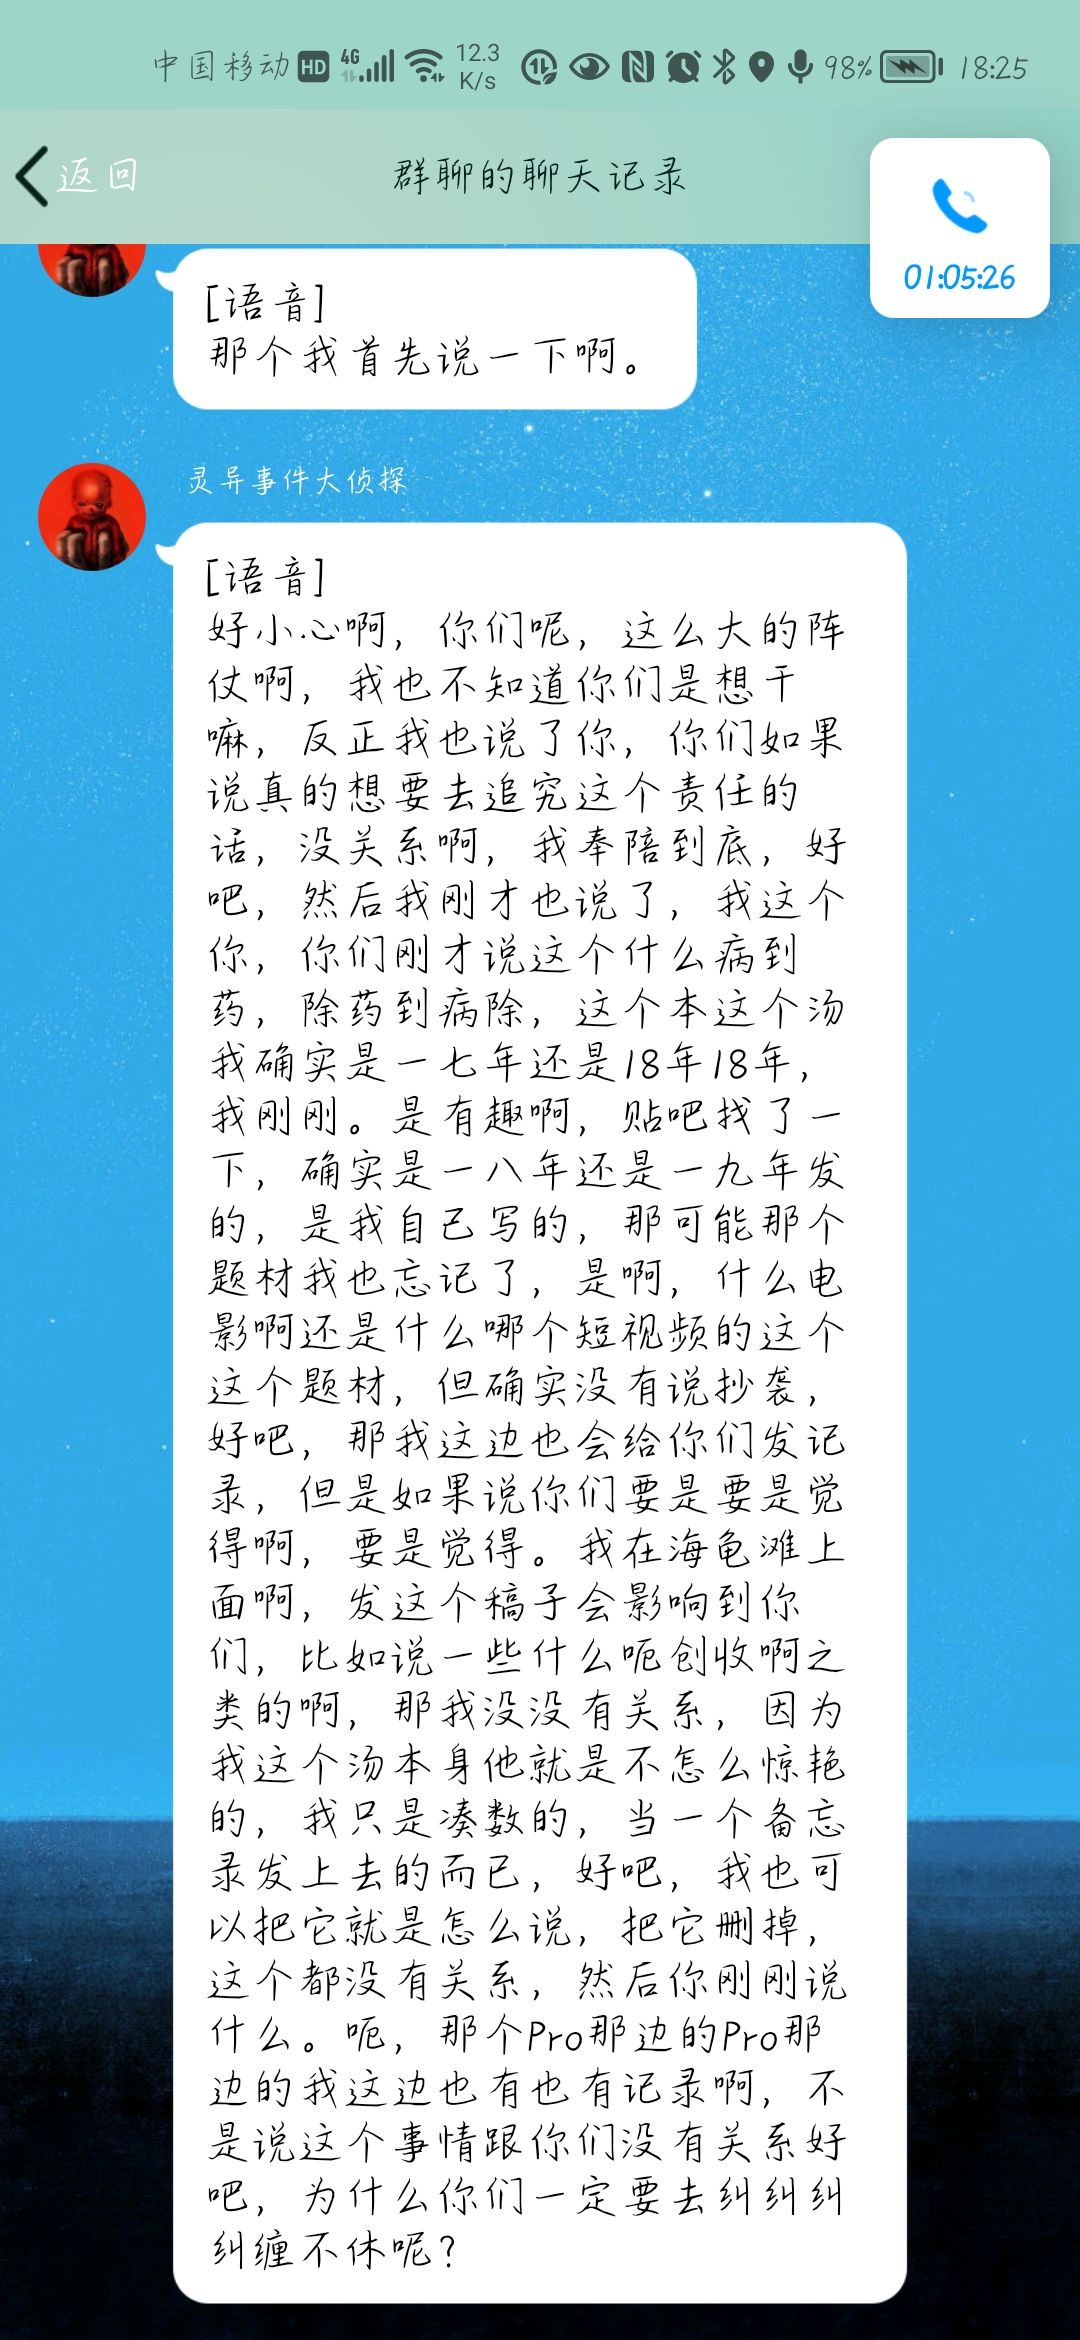 中国移动 HD 4G 12.3 K/s 98% 18:25
返回 群聊的聊天记录
01:05:26
[语音]
那个我首先说一下啊。
灵异事件大侦探
[语音]
好小心啊，你们呢，这么大的阵
仗啊，我也不知道你们是想干
嘛，反正我也说了你，你们如果
说真的想要去追究这个责任的
话，没关系啊，我奉陪到底，好
吧，然后我刚才也说了，我这个
你，你们刚才说这个什么病到
药，除药到病除，这个本这个汤
我确实是一七年还是18年18年，
我刚刚。是有趣啊，贴吧找了一
下，确实是一八年还是一九年发
的，是我自己写的，那可能那个
题材我也忘记了，是啊，什么电
影啊还是什么哪个短视频的这个
这个题材，但确实没有说抄袭，
好吧，那我这边也会给你们发记
录，但是如果说你们要是要是觉
得啊，要是觉得。我在海龟滩上
面啊，发这个稿子会影响到你
们，比如说一些什么呃创收啊之
类的啊，那我没没有关系，因为
我这个汤本身他就是不怎么惊艳
的，我只是凑数的，当一个备忘
录发上去的而已，好吧，我也可
以把它就是怎么说，把它删掉，
这个都没有关系，然后你刚刚说
什么。呃，那个Pro那边的Pro那
边的我这边也有也有记录啊，不
是说这个事情跟你们没有关系好
吧，为什么你们一定要去纠纠纠
纠缠不休呢？